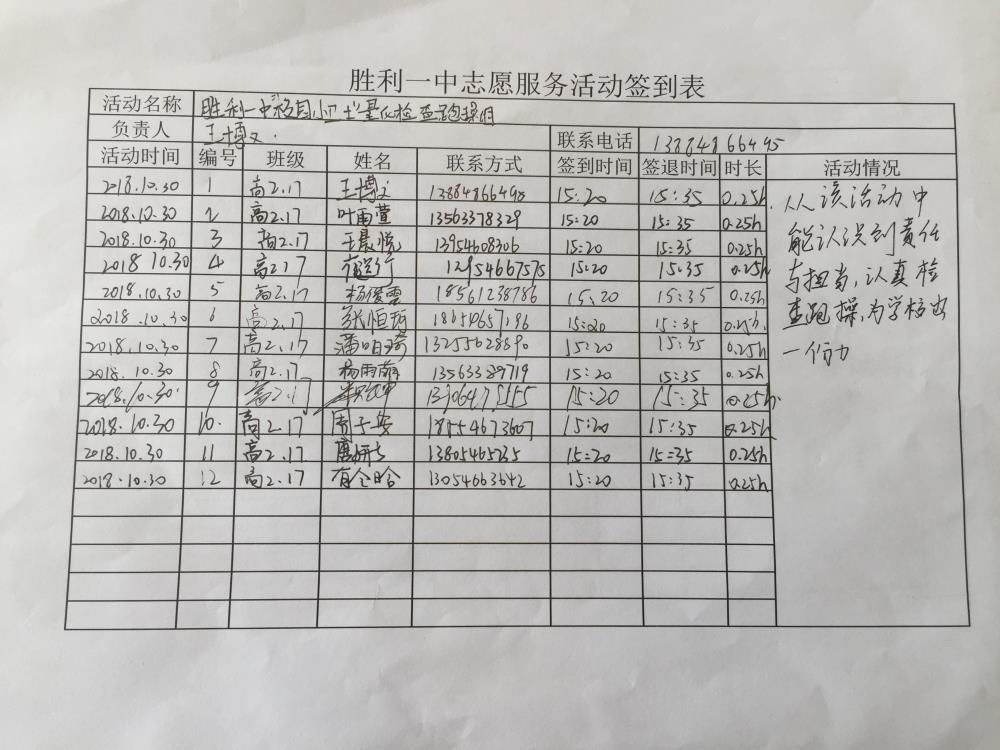 胜利一中志愿服务活动签到表
活动名称 胜利一中校园卫士量化检查跑操
负责人 王博文 联系电话 13884866495
活动时间 编号 班级 姓名 联系方式 签到时间 签退时间 时长 活动情况
2018.10.30 1 高2.17 王博文 13884866495 15:20 15:35 0.25h
2018.10.30 2 高2.17 叶雨萱 13563378329 15:20 15:35 0.25h
2018.10.30 3 高2.17 王晨悦 13954608306 15:20 15:35 0.25h
2018 10.30 4 高2.17 12954667575 15:20 15:35 0.25h
2018.10.30 5 高2.17 杨俊雲 18561238786 15:20 15:35 0.25h
2018.10.30 6 高2.17 张恒珂 18654657196 15:20 15:35 0.25h.
2018.10.30 7 高2.17 13255628890 15:20 15:35 0.25h
2018.10.30 8 高2.17 13563389719 15:20 15:35 0.25h
2018.10.30. 9 高2.17 15:20 15:35 0.25h
2018.10.30 10. 高2.17 周子安 18554673607 15:20 15:35 0.25h
2018.10.30 11 高2.17 15:20 15:35 0.25h
2018.10.30 12 高2.17 13054663642 15:20 15:35 0.25h
从该活动中
能认识到责任
与担当,认真检
查跑操,为学校出
一份力